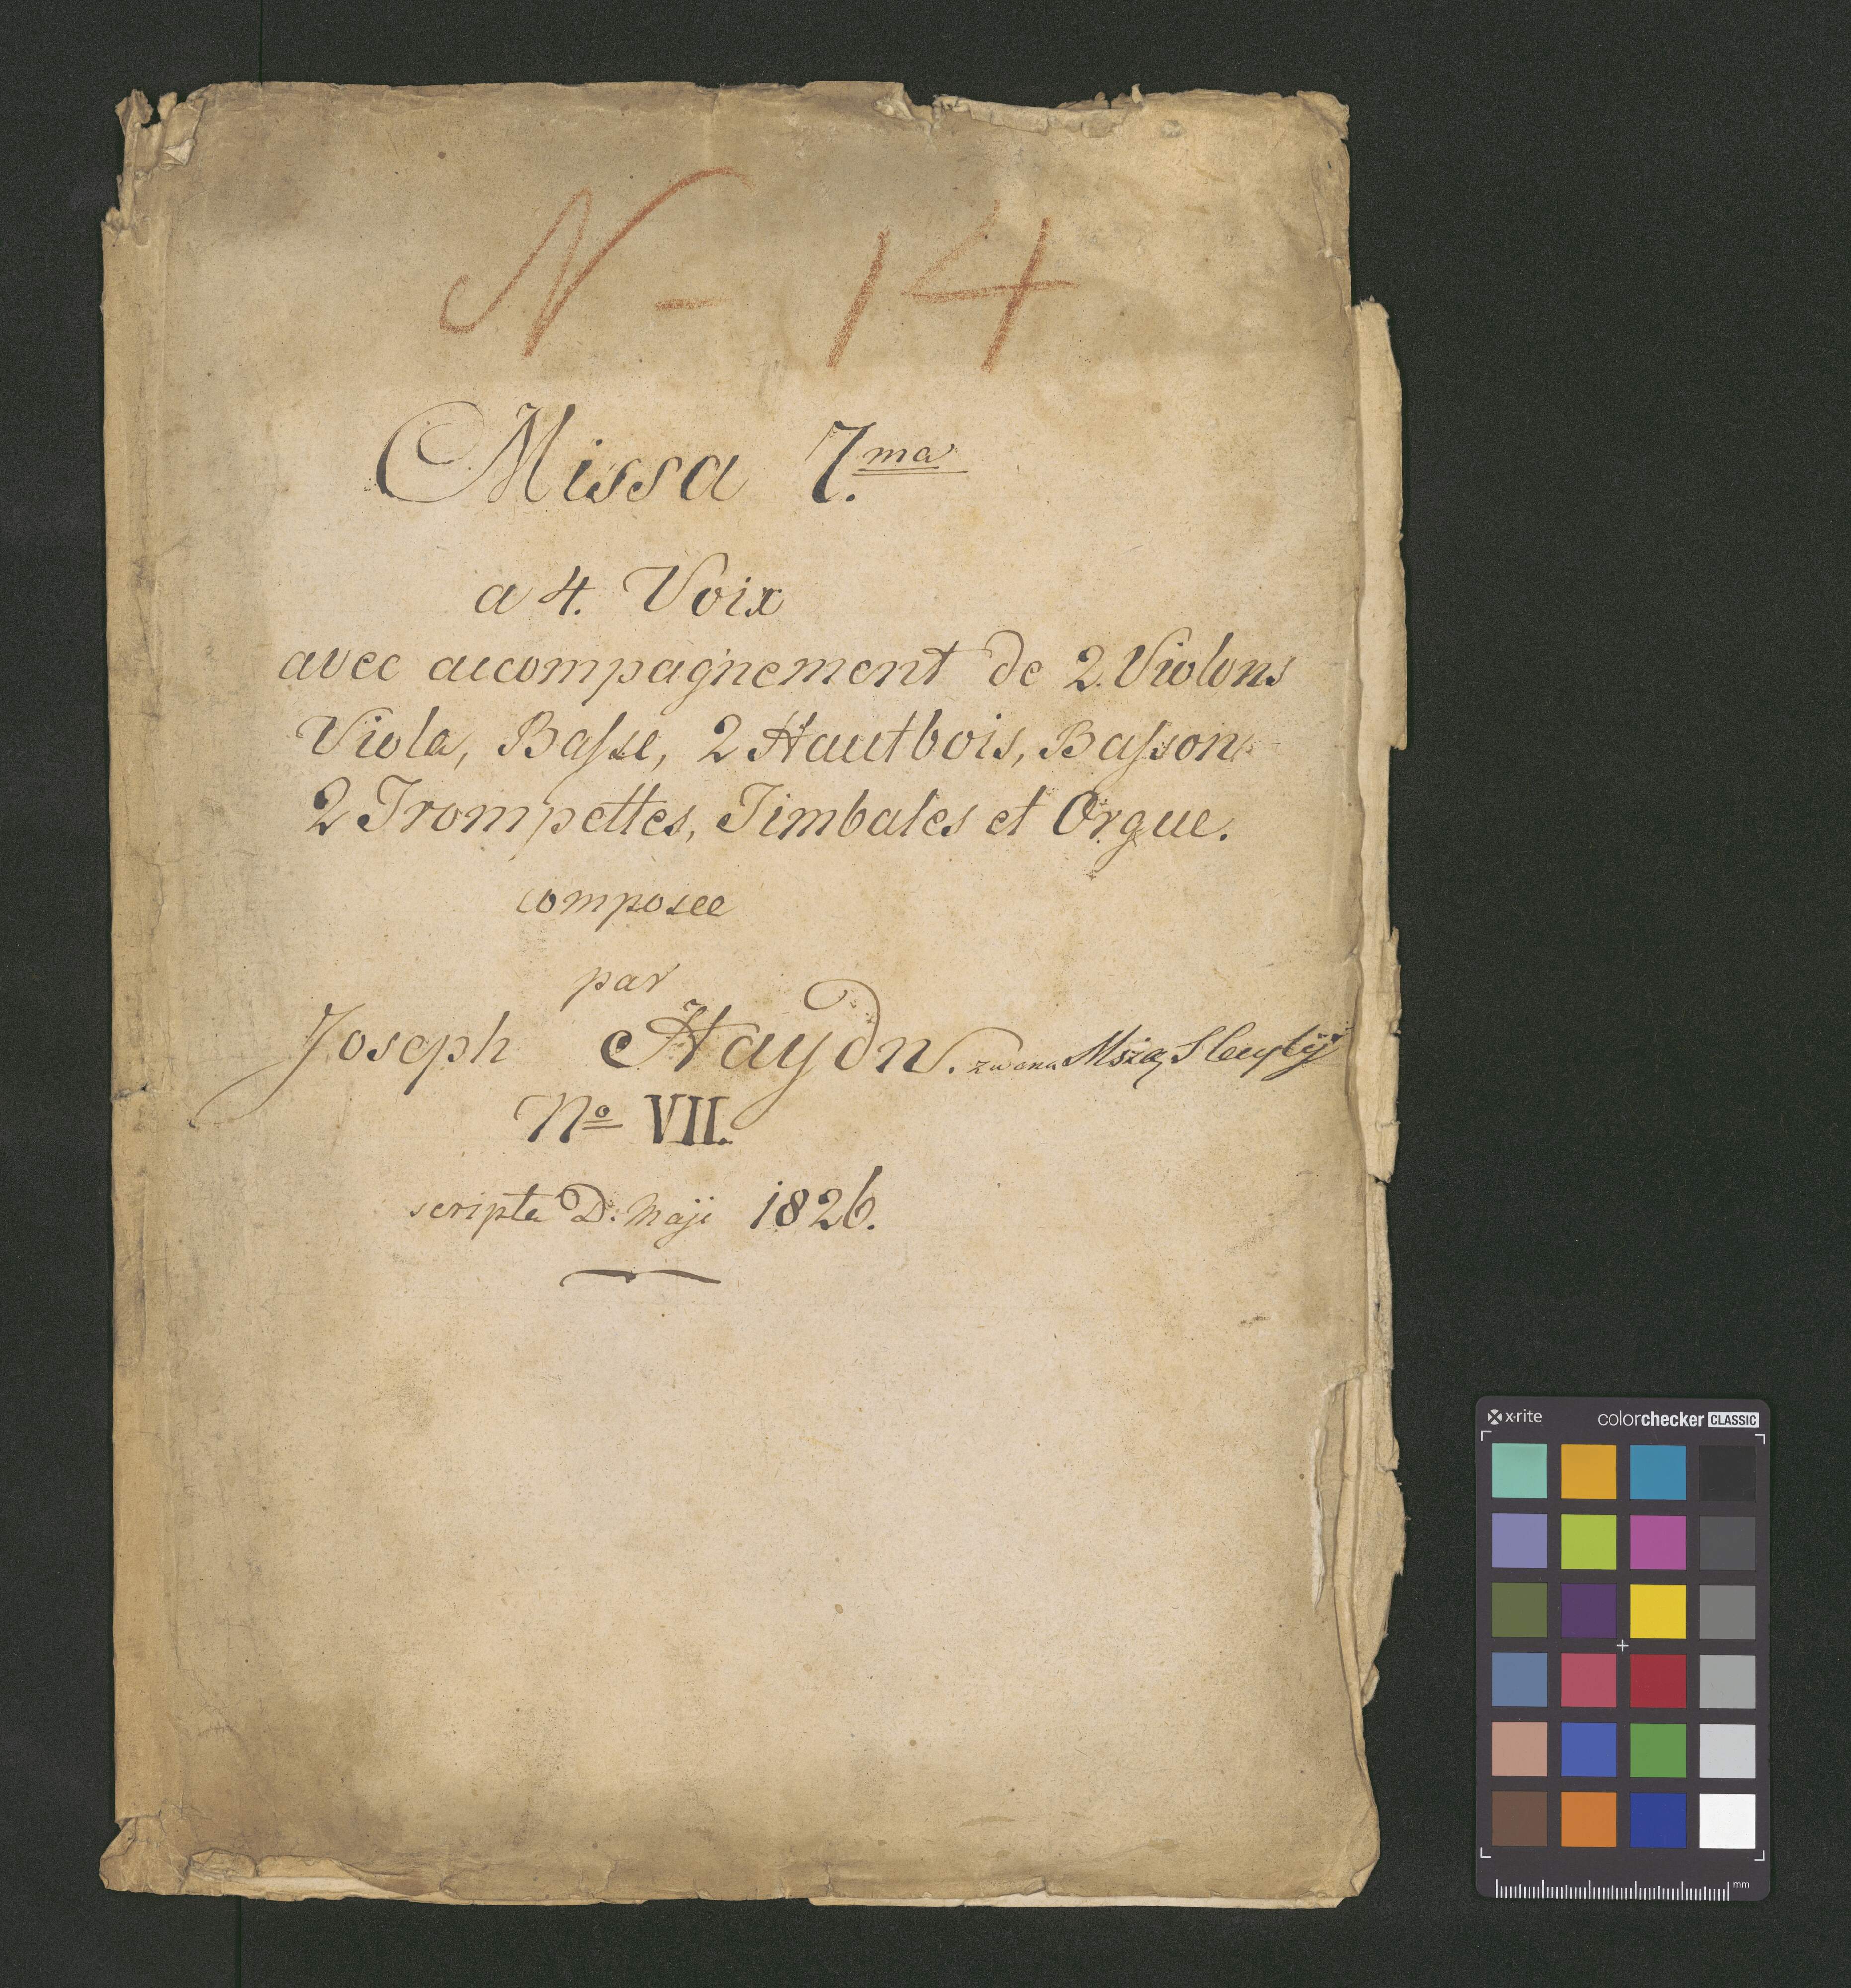 N - 14
Missa 7.ma
a 4. Voix
avec accompagnement de 2. Violons
Viola, Baſse, 2 Hautbois, Baſson
2 Trompettes, Timbales et Orgue.
composee
par
Joseph Haydn. zwana Mszą
No VII.
scripta D: Maji 1826.
x·rite colorchecker CLASSIC
mm